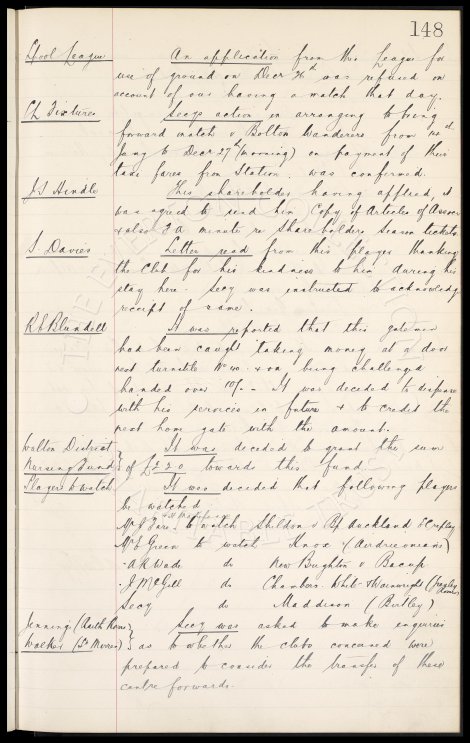 148
L'pool League An application from this League for
use of ground on Decr 26th was refused on
account of our having a match that day.
CL Fixtures Secys action in arranging to bring
forward match v Bolton Wanderers from
Jany to Decr 27th (morning) on payment of their
taxi fares from Station was confirmed.
J S Hindle This shareholder having applied, it
was agreed to send him Copy of Articles of Assocn
& also a minute re Shareholders season tickets.
S Davies Letter read from this player thanking
the Club for his kindness to him during his
stay here. Secy was instructed to acknowledge
receipt of same.
R E Blundell It was reported that this gateman
had been caught taking money at a door
next turnstile No 40 & on being challenged
handed over 10/-. It was decided to dispense
with his services in future & to credit the
next home gate with the amount.
Walton District It was decided to grant the sum
Nursing Fund of £2.2.0 towards this fund.
Players to watch It was decided that following players
be watched
Mr J Fare to watch Shildon v Bp Auckland & Cropley
Mr E Green to watch Knox (Airdrieonians)
A R Wade do New Brighton v Bacup
J McGill do Chambers, White & Wainwright
Secy do Maddison (Birtley)
Jennings (Raith Rovrs) Secy was asked to make enquiries
Walker (St Mirren) as to whether the clubs concerned were
prepared to consider the transfer of these
centre forwards.